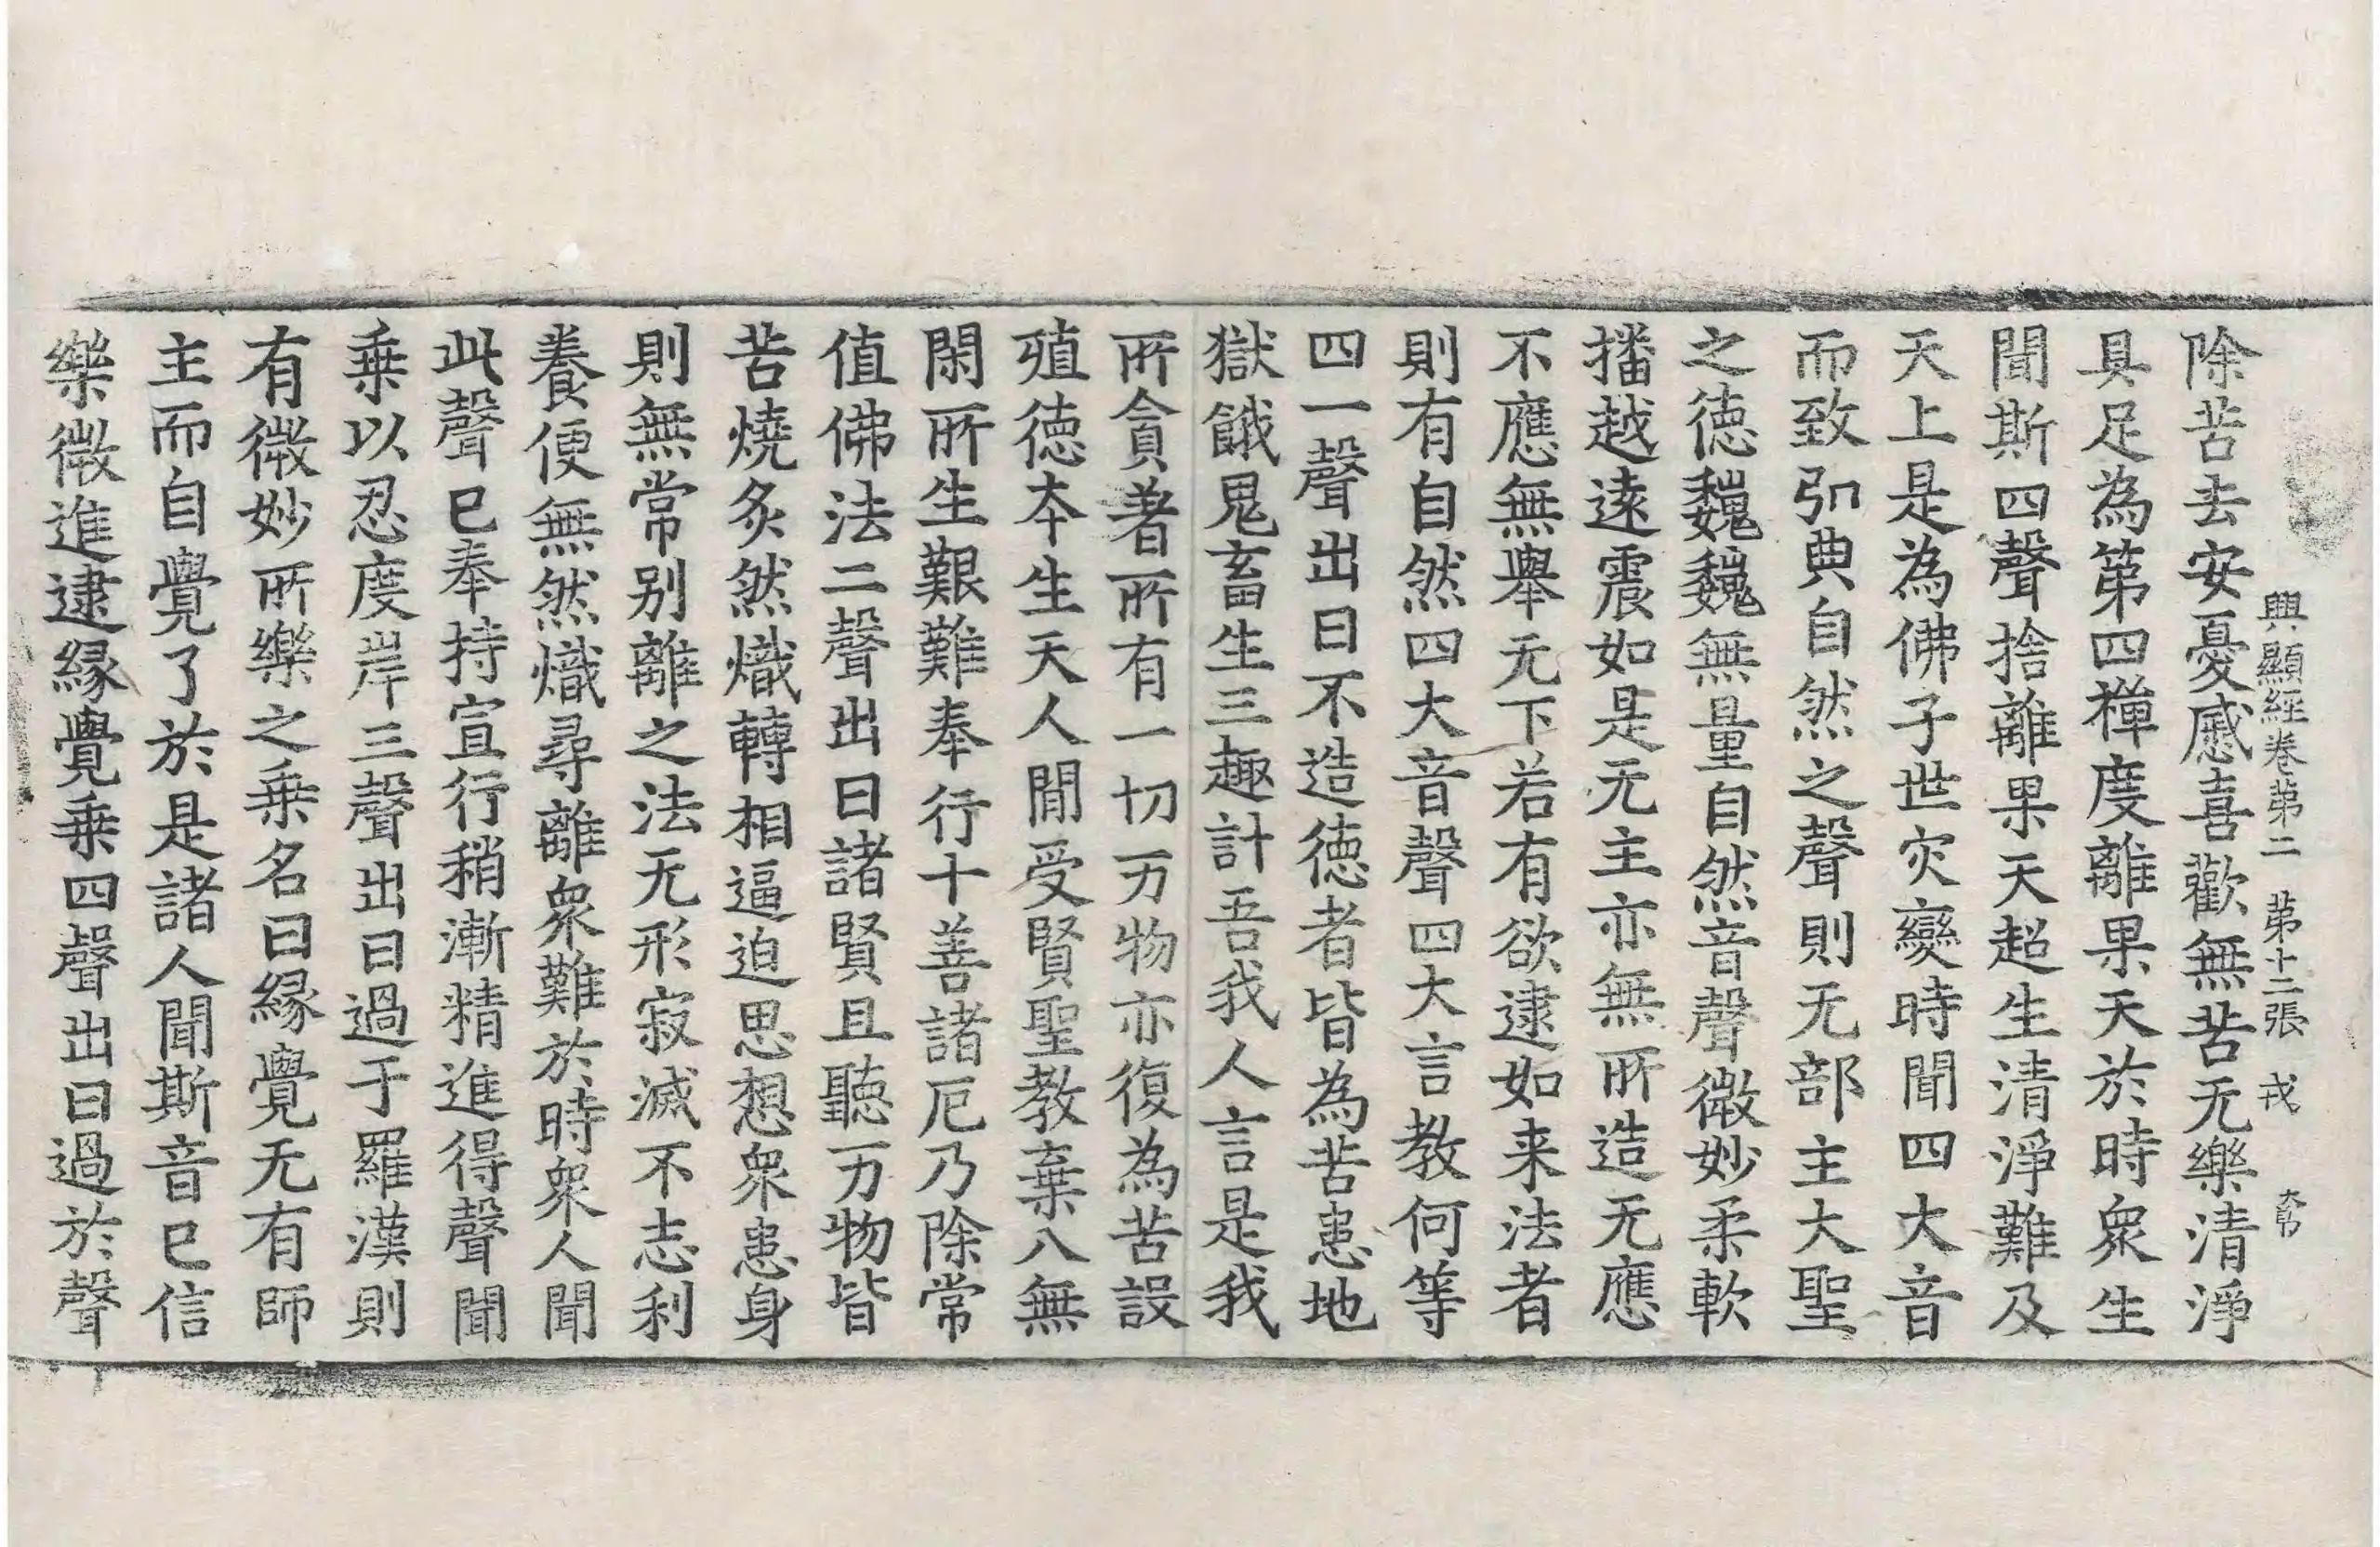 興顯經卷第二　第十二張　戎　大卬
除苦去安憂慼喜歡無苦无樂清淨
具足為第四禪度離果天於時衆生
聞斯四聲捨離果天超生清淨難及
天上是為佛子世灾變時聞四大音
而致弘典自然之聲則无部主大聖
之德巍巍無量自然音聲微妙柔軟
播越遠震如是无主亦無所造无應
不應無舉无下若有欲逮如来法者
則有自然四大音聲四大言教何等
四一聲出曰不造德者皆為苦患地
獄餓鬼畜生三趣計吾我人言是我
所貪著所有一切万物亦復為苦設
殖德本生天人閒受賢聖教棄八無
閑所生艱難奉行十善諸厄乃除常
值佛法二聲出曰諸賢且聽万物皆
苦燒炙然熾轉相逼迫思想衆患身
則無常别離之法无形寂滅不志利
養便無然熾尋離衆難於時衆人聞
此聲已奉持宣行稍漸精進得聲聞
乗以忍度岸三聲出曰過于羅漢則
有微妙所樂之乗名曰緣覺无有師
主而自覺了於是諸人聞斯音已信
樂微進逮緣覺乗四聲出曰過於聲